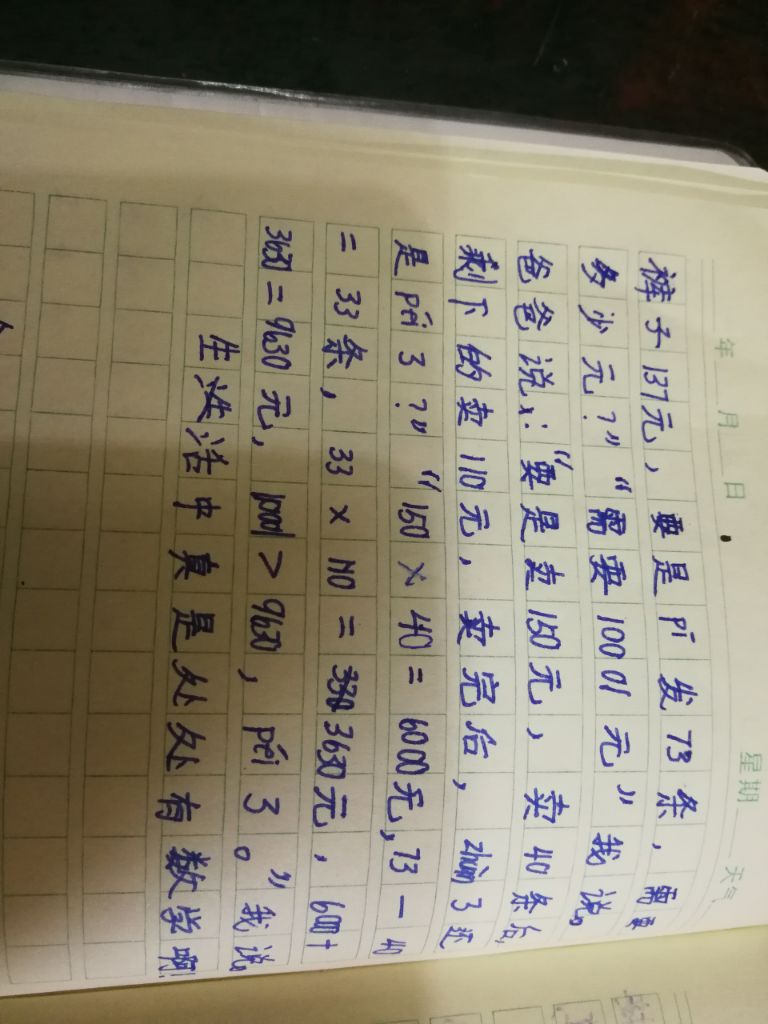 年 月 日 星期 天气
裤子137元，要是pī发73条，需要
多少元？”“需要10001元”我说。
爸爸说：“要是卖150元，卖40条后，
剩下的卖110元，卖完后，zhuàn了还
是péi了？”“150×40=6000元，73-40
=33条，33×110=3630元，600+
3630=9630元，10001>9630，péi了。”我说。
生活中真是处处有数学啊!